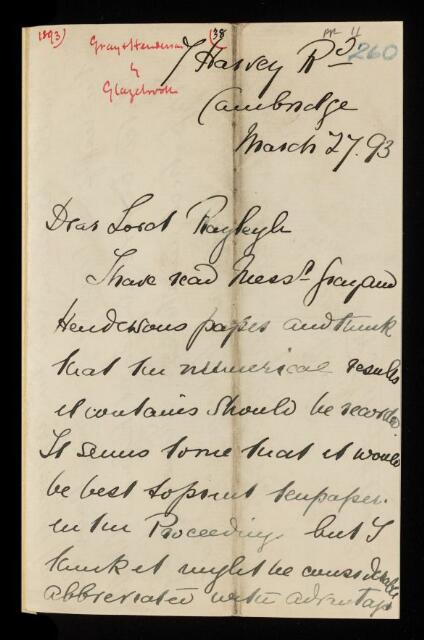 1893)
(38
RR 11
260
Gray & Henderson
by
Glazebrook
7 Harvey Rd
Cambridge
March 27. 93
Dear Lord Rayleigh
I have read Messrs Gray and
Hendersons paper and think
that the numerical results
it contains should be recorded
It seems to me that it would
be best to print the paper
in the Proceedings but I
think it might be considerably
abbreviated with advantage